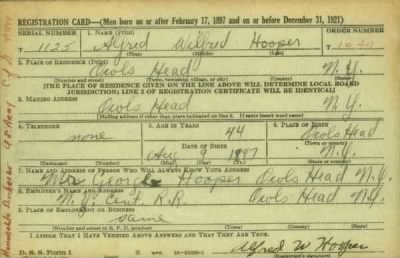 REGISTRATION CARD—(Men born on or after February 17, 1897 and on or before December 31, 1921)
SERIAL NUMBER 1. NAME (Print) ORDER NUMBER
1125 Alfred Wilfred Hooper
(First) (Middle) (Last)
2. PLACE OF RESIDENCE (Print)
Owls Head N.Y.
(Number and street) (Town, township, village, or city) (County) (State)
(THE PLACE OF RESIDENCE GIVEN ON THE LINE ABOVE WILL DETERMINE LOCAL BOARD
JURISDICTION; LINE 2 OF REGISTRATION CERTIFICATE WILL BE IDENTICAL)
3. MAILING ADDRESS
Owls Head N.Y.
(Mailing address if other than place indicated on line 2. If same insert word same)
4. TELEPHONE 5. AGE IN YEARS 6. PLACE OF BIRTH
none 44 Owls Head
DATE OF BIRTH
Aug 9 1897 N.Y.
7. NAME AND ADDRESS OF PERSON WHO WILL ALWAYS KNOW YOUR ADDRESS
Mrs George Hooper Owls Head N.Y.
8. EMPLOYER'S NAME AND ADDRESS
N.Y. Cent R.R. Owls Head N.Y.
9. PLACE OF EMPLOYMENT OR BUSINESS
same
(Number and street or R. F. D. number) (Town) (County) (State)
I AFFIRM THAT I HAVE VERIFIED ABOVE ANSWERS AND THAT THEY ARE TRUE.
D. S. S. Form 1
Alfred W Hooper
(Registrant's signature)
Honorable Discharge